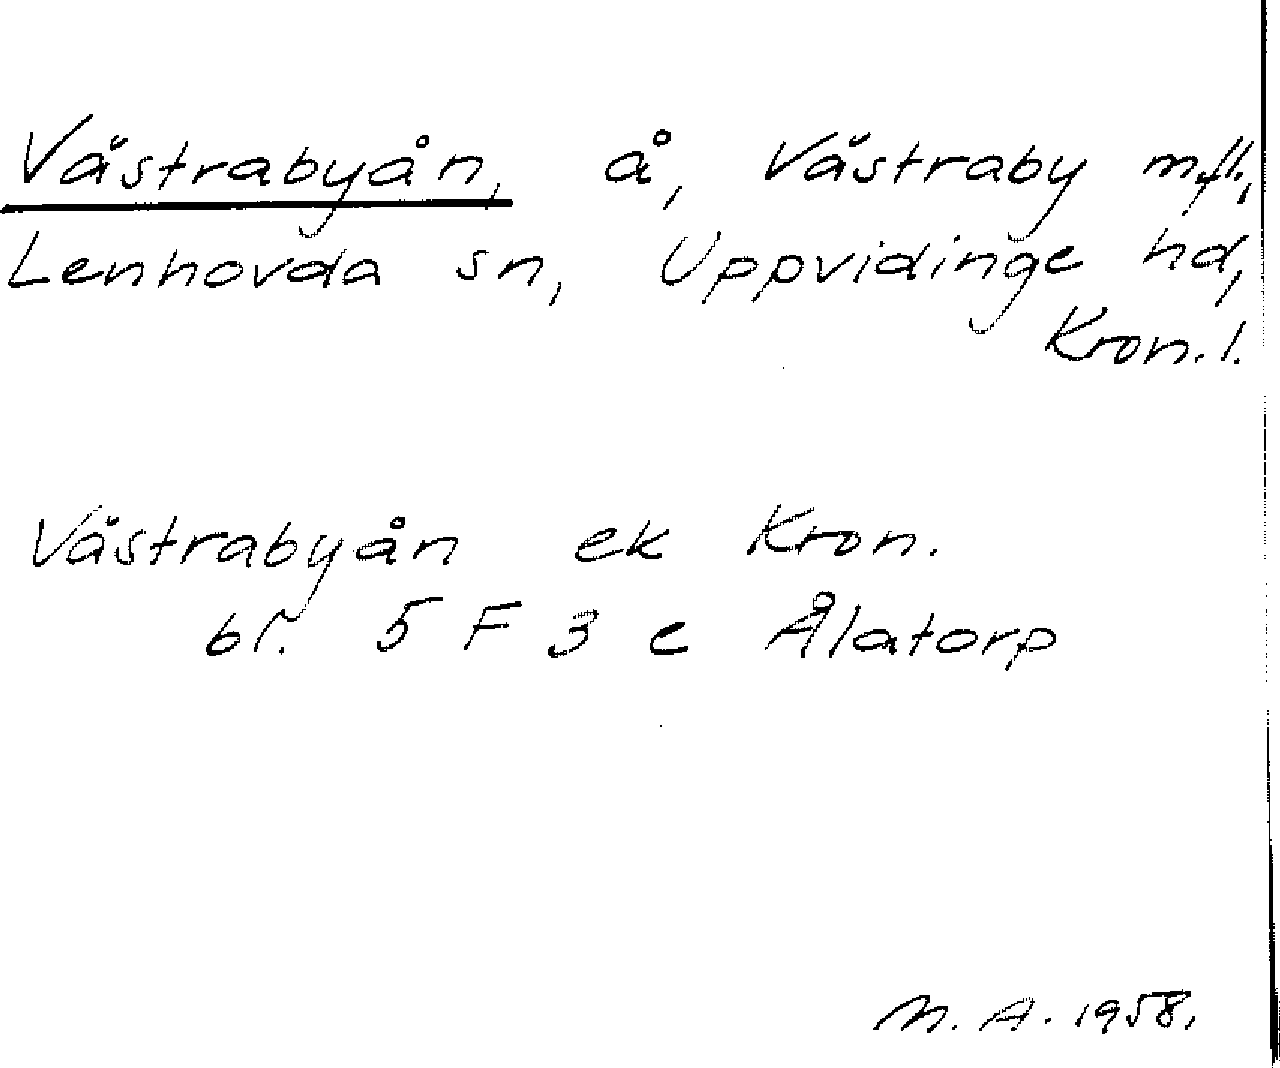 Västrabyån, å, Västraby m.fl.,
Lenhovda sn, Uppvidinge hd,
Kron. l.
Västrabyån ek Kron.
bl. 5 F 3 e Ålatorp
M. A. 1958.